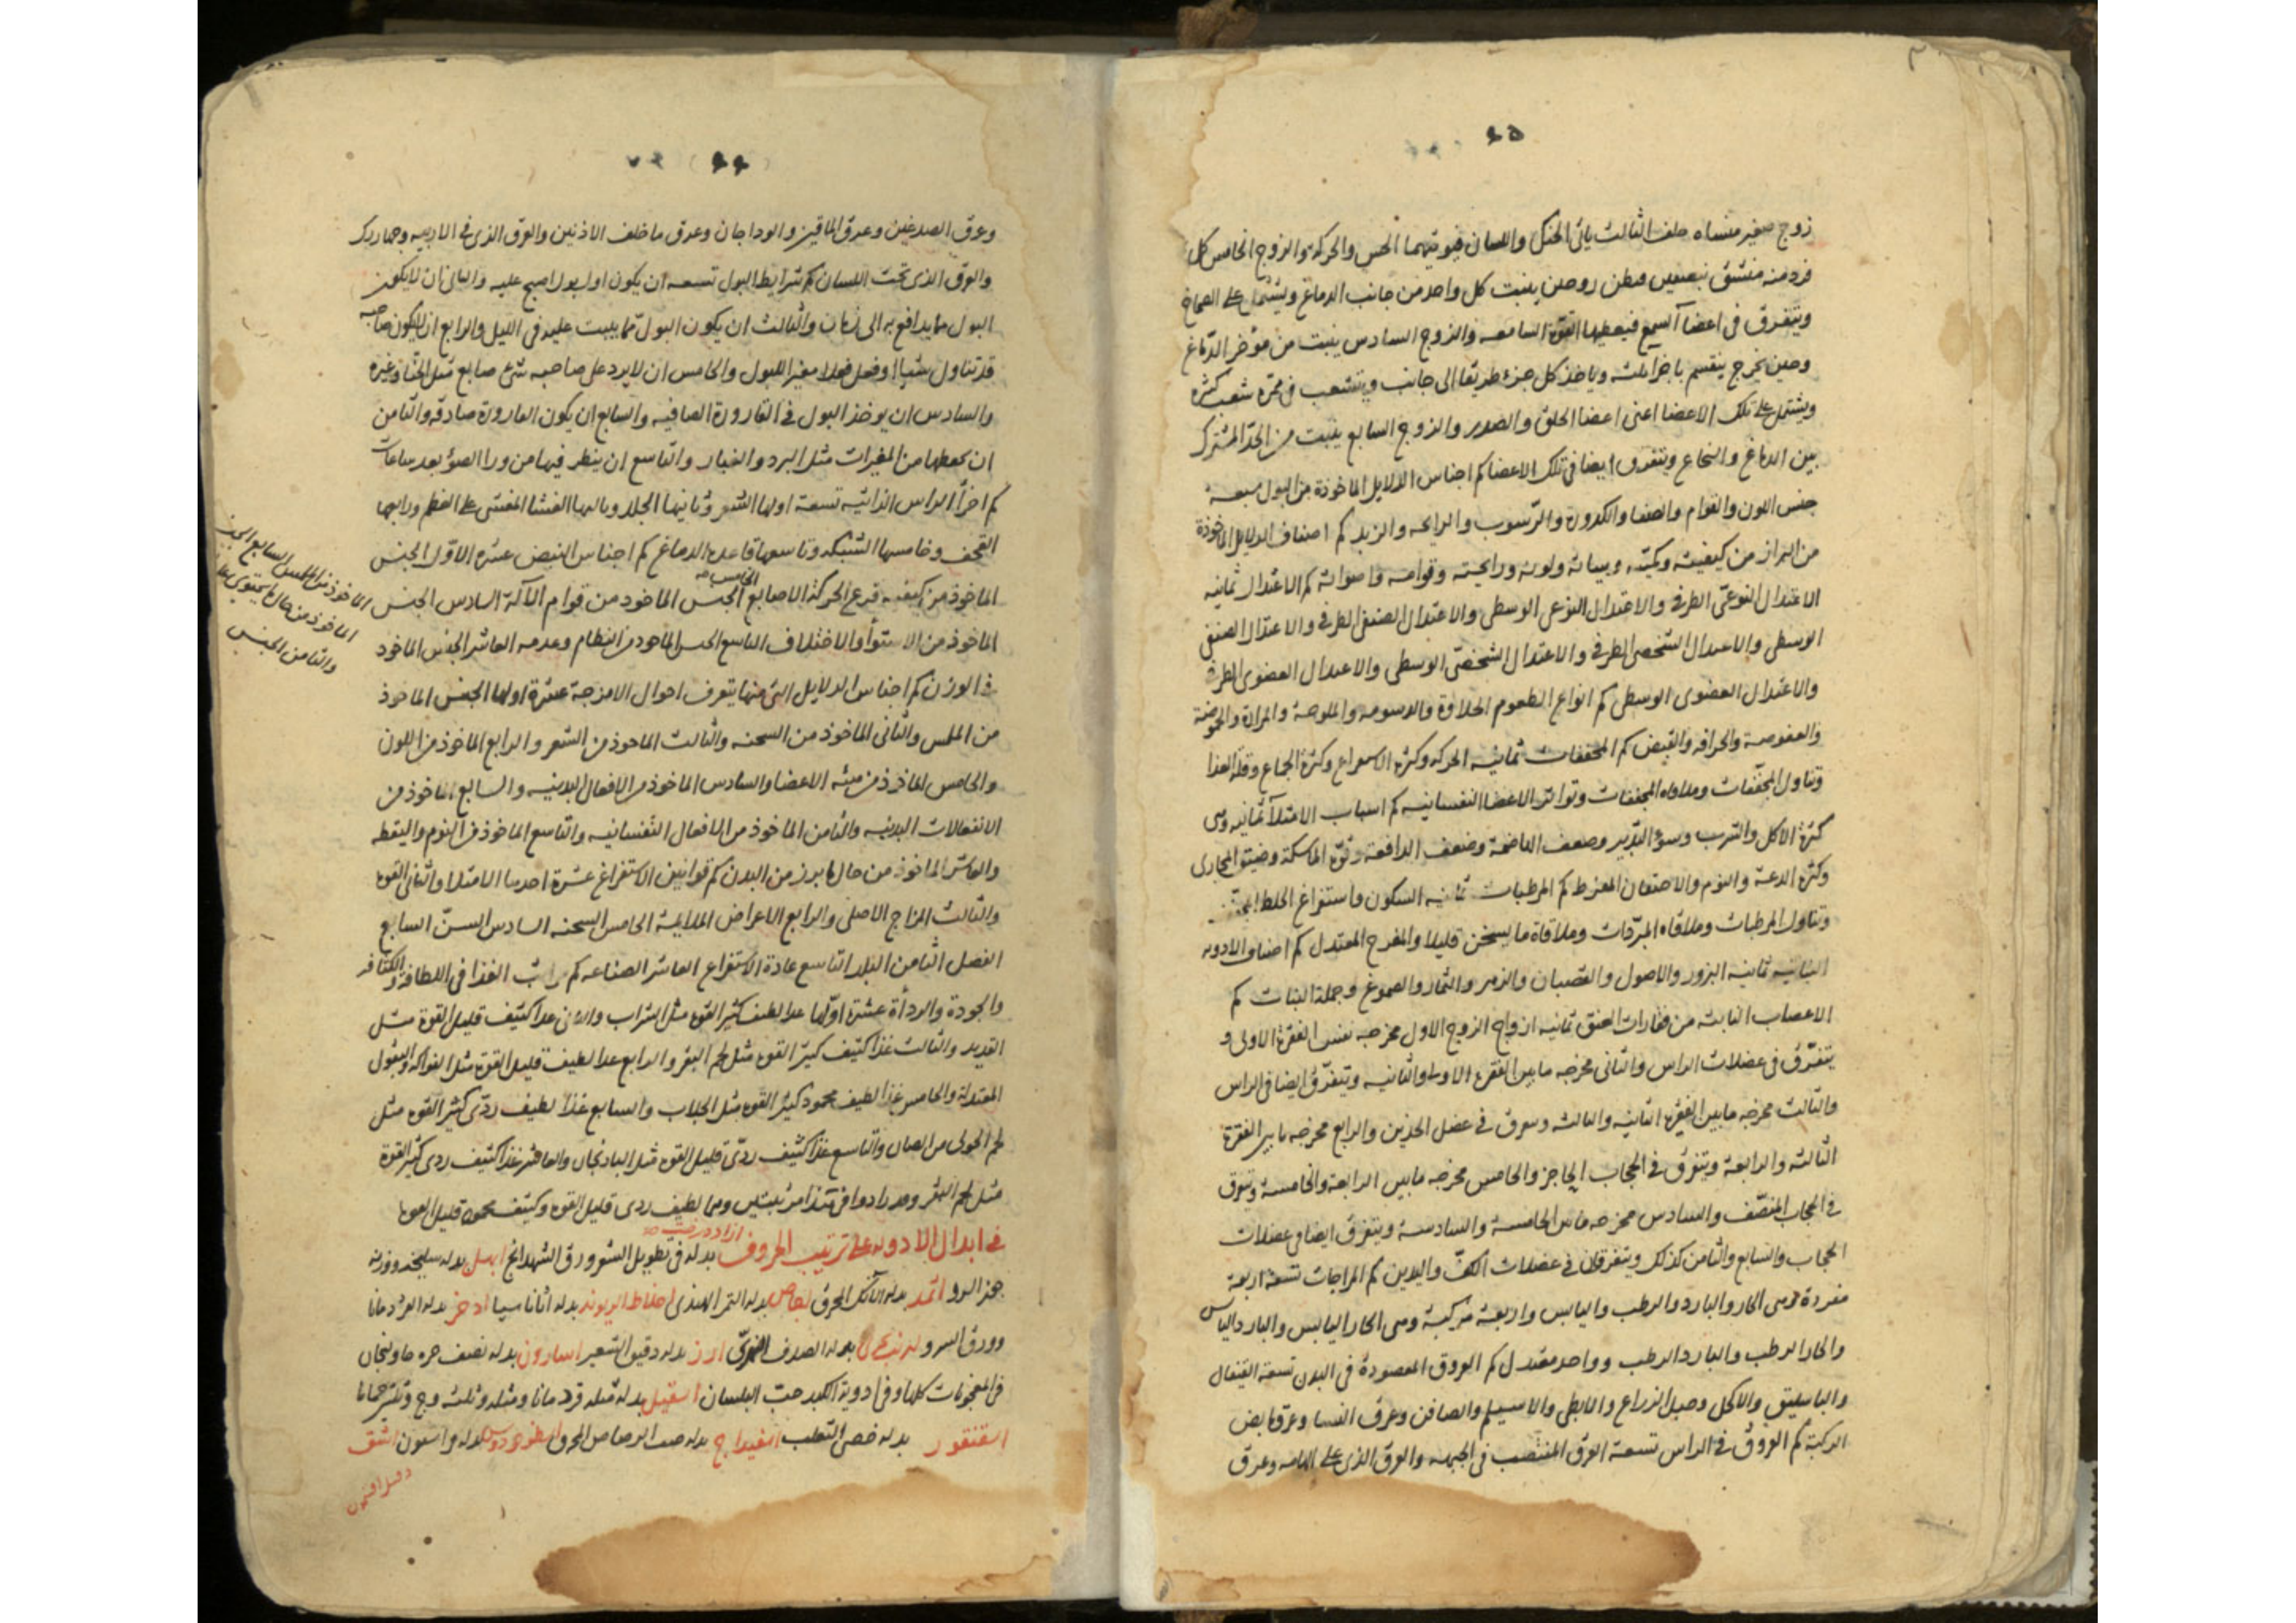 ٤٥
زوج صغير منشاه خلف الثالث ياتى الحنك واللسان فيوتيهما الحس والحركة والزوج الخامس كل
فرد منه منشق بنصفين يظن زوجين ينبت كل واحد من جانب الدماغ ويشتمل على الصماخ
ويتفرق فى اعضآ السمع فيعطيها القوة السامعه والزوج السادس ينبت من مؤخر الدماغ
وحين يخرج ينقسم باجزا ثلثه وياخذ كل جزء طريقا الى جانب ويتشعب فى ممره شعب كثيره
ويشتمل على تلك الاعضا اعنى اعضا الحلق والصدر والزوج السابع ينبت من الحد المشترك
بين الدماغ والنخاع ويتفرق ايضا فى تلك الاعضا كم اجناس الدلايل الماخوذة من البول سبعه
جنس اللون والقوام والصفا والكدورة والرسوب والرايحه والزبد كم اصناف الدلايل الماخوذة
من البراز من كيفيته وكميته وهيياته ولونه ورايحته وقوامه واصواته كم الاعتدال ثمانيه
الاعتدال النوعى الطرفى والاعتدال النوعى الوسطى والاعتدال الصنفى الطرفى والاعتدال الصنفى
الوسطى والاعتدال الشخصى الطرفى والاعتدال الشخصى الوسطى والاعتدال العضوى الطرفى
والاعتدال العضوى الوسطى كم انواع الطعوم الحلاوة والدسومه والملوحة والمرارة والحموضة
والعفوصة والحرافه والقبض كم المجففات ثمانيه الحركه وكثرة الاستفراغ وكثرة الجماع وقلة الغذا
وتناول المجففات وملاقاه المجففات وتواتر الاعضا النفسانيه كم اسباب الامتلآ ثمانيه وهى
كثرة الاكل والشرب وسوء التدبير وضعف الهاضمة وضعف الدافعة وقوة الماسكة وضيق المجارى
وكثرة الدعة والنوم والاحتقان المفرط كم المرطبات ثمانيه السكون واستفراغ الخلط المجفف
وتناول المرطبات وملاقاه المبردات وملاقاة ما يسخن قليلا والمفرح المعتدل كم اصناف الادويه
النباتيه ثمانيه البزور والاصول والقضبان والزهر والثمار والصموغ وجملة النبات كم
الاعصاب النابته من فقارات العنق ثمانيه ازواج الزوج الاول مخرجه نفس الفقرة الاولى و
يتفرق فى عضلات الراس والثانى مخرجه مابين الفقرة الاولى والثانيه ويتفرق ايضا فى الراس
والثالث مخرجه مابين الفقرة الثانيه والثالثه وتفرق فى عضل الخدين والرابع مخرجه مابين الفقرة
الثالثه والرابعة ويتفرق فى الحجاب الحاجز والخامس مخرجه مابين الرابعة والخامسة ويتفرق
فى الحجاب المنصف والسادس مخرجه مابين الخامسة والسادسة ويتفرق ايضا فى عضلات
الحجاب والسابع والثامن كذلك ويتفرقان فى عضلات الكف واليدين كم المزاجات تسعة اربعة
مفردة وهى الحار والبارد والرطب واليابس واربعة مركبة وهى الحار اليابس والبارد اليابس
والحار الرطب والبارد الرطب وواحد معتدل كم العروق المفصودة فى البدن تسعة القيفال
والباسليق والاكحل وحبل الذراع والابطى والاسيلم والصافن وعرق النسا وعرق مابض
الركبة كم العروق فى الراس تسعة العرق المنتصب فى الجبهه والعرق الذى على الهامه وعرق
٤٤
وعرق الصدغين وعرق الماقين والوداجان وعرق ما خلف الاذنين والعرق الذى فى الارنبه وچهاررك
والعرق الذى تحت اللسان كم شرايط البول تسعه ان يكون اول بول اصبح عليه والثانى ان لا يكون
البول مما يدافع به الى زمان والثالث ان يكون البول مما يبيت عليه فى الليل والرابع ان لا يكون صاحبه
قد تناول شيا او فعل فعلا مغيرا للبول والخامس ان لا يرد على صاحبه شئ صابغ مثل الحنا وغيره
والسادس ان يوخذ البول فى القارورة الصافيه والسابع ان يكون القارورة صادقه والثامن
ان يحفظها من المغيرات مثل البرد والغبار والتاسع ان ينظر فيها من ورا الضو بعد ساعات
كم اجزآ الراس الذاتيه تسعة اولها الشعر وثانيها الجلد وثالثها الغشا المغشى على العظم ورابعها
القحف وخامسها الشبكه وتاسعها قاعدة الدماغ كم اجناس النبض عشره الاول الجنس
الماخوذ من كيفيه قرع الحركة الاصابع الخامس الجنس الماخوذ من قوام الآلة السادس الجنس
الماخوذ من الملمس السابع الجنس
الماخوذ من حال ما يحتوى عليه
والثامن الجنس
الماخوذ من الاستوآ والاختلاف التاسع الجنس الماخوذ من النظام وعدمه العاشر الجنس الماخوذ
فى الوزن كم اجناس الدلايل التى منها يتعرف احوال الامزجة عشرة اولها الجنس الماخوذ
من الملمس والثانى الماخوذ من السحنه والثالث الماخوذ من الشعر والرابع الماخوذ من اللون
والخامس الماخوذ من هيئة الاعضا والسادس الماخوذ من الافعال البدنيه والسابع الماخوذ من
الانفعالات البدنيه والثامن الماخوذ من الافعال النفسانيه والتاسع الماخوذ من النوم واليقظه
والعاشر الماخوذ من حال ما يبرز من البدن كم قوانين الاستفراغ عشرة احدها الامتلا والثانى القوة
والثالث المزاج الاصلى والرابع الاعراض الملايمة الخامس السحنه السادس السن السابع
الفصل الثامن البلد التاسع عادة الاستفراغ العاشر الصناعه كم مراتب الغذا فى اللطافة والكثافه
والجودة والردأة عشرة اولها غذا لطيف كثير القوه مثل الشراب والثانى غذا كثيف قليل القوة مثل
القديد والثالث غذا كثيف كثير القوه مثل لحم البقر والرابع غذا لطيف قليل القوة مثل الفواكه والبقول
المعتدلة والخامس غذا لطيف محمود كثير القوه مثل الجلاب والسابع غذا لطيف ردى كثير القوه مثل
لحم الحولى من الضان والتاسع غذا كثيف ردى قليل القوه مثل الباذنجان والعاشر غذا كثيف ردى كثير القوة
مثل لحم البقر وقد زادوا فى هذا مرتبتين وهما لطيف ردى قليل القوه وكثيف محمود قليل القوه
فى ابدال الادويه على ترتيب الحروف ازاددرخت بدله فى تطويل الشعر ورق الشهدانج ابهل بدله سليخه ووزنه
جوز السرو اثمد بدله الآنك المحرق اجاص بدله التمر الهندى بدله اثاناسيا اذخر بدله
وورق السرو بدله الصدف المحرق ارز بدله دقيق الشعير اسارون بدله نصف وخولنجان
فى المعجونات كلها وفى ادوية الكبد حب البلسان اسقيل بدله مثله قردمانا ومثله وثلثه وج وثلثى حماما
اسقنقور بدله خصى الثعلب اسفيداج بدله خبث الرصاص المحرق اسطوخودوس بدله فراسيون اشق